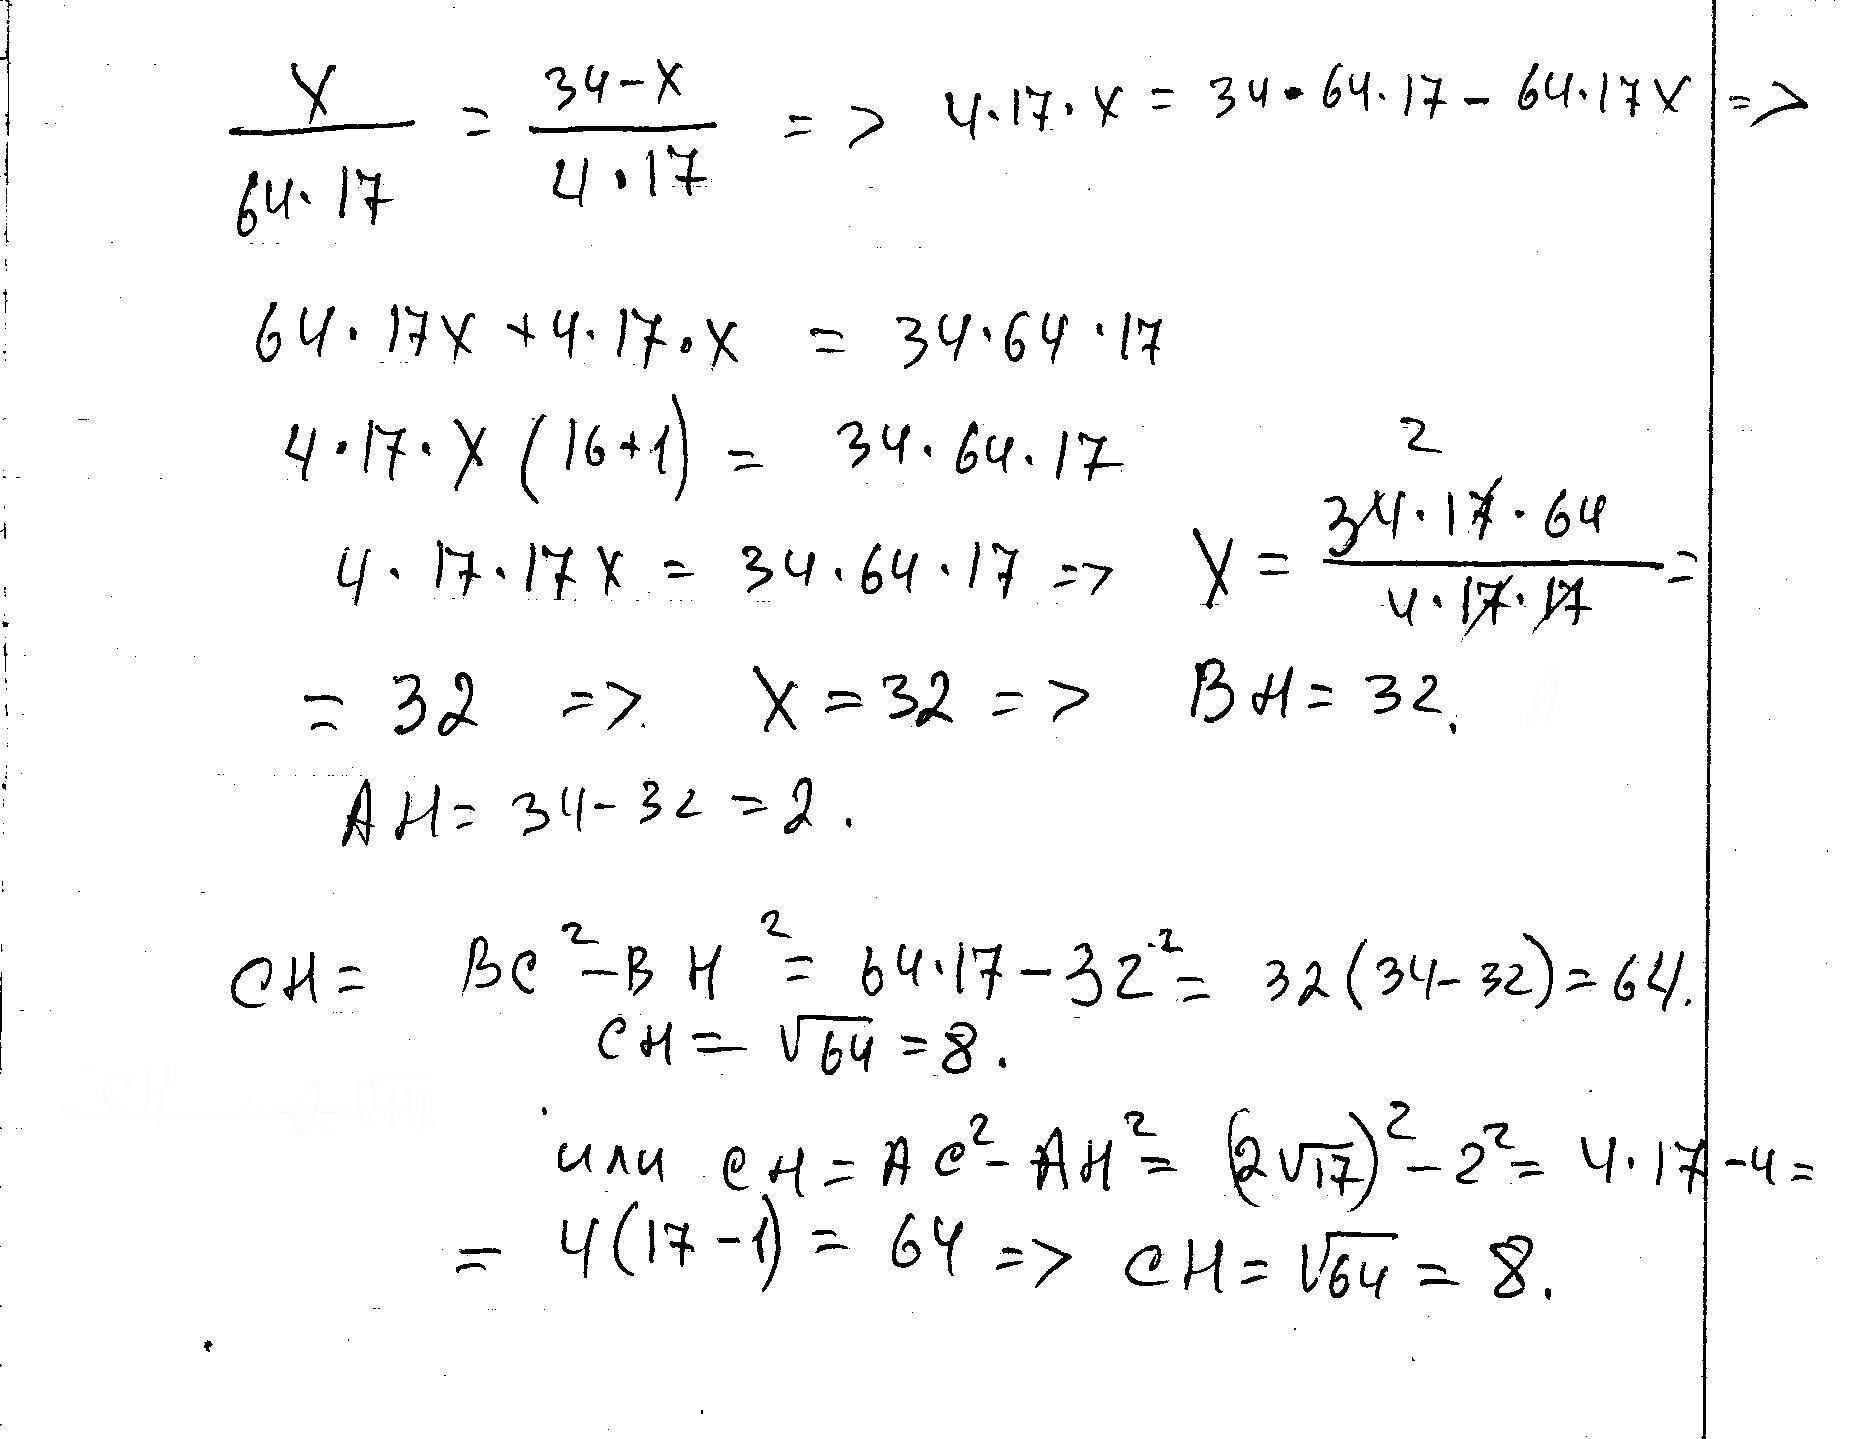 x/(64·17) = (34-x)/(4·17) => 4·17·x = 34·64·17 - 64·17x =>
64·17x + 4·17·x = 34·64·17
4·17·x (16+1) = 34·64·17
2
4·17·17x = 34·64·17 => x = (34·17·64)/(4·17·17) =
= 32 => x = 32 => BH = 32.
AH = 34 - 32 = 2.
CH = BC² - BH² = 64·17 - 32² = 32(34-32) = 64.
CH = √64 = 8.
или CH = AC² - AH² = (2√17)² - 2² = 4·17 - 4 =
= 4(17-1) = 64 => CH = √64 = 8.